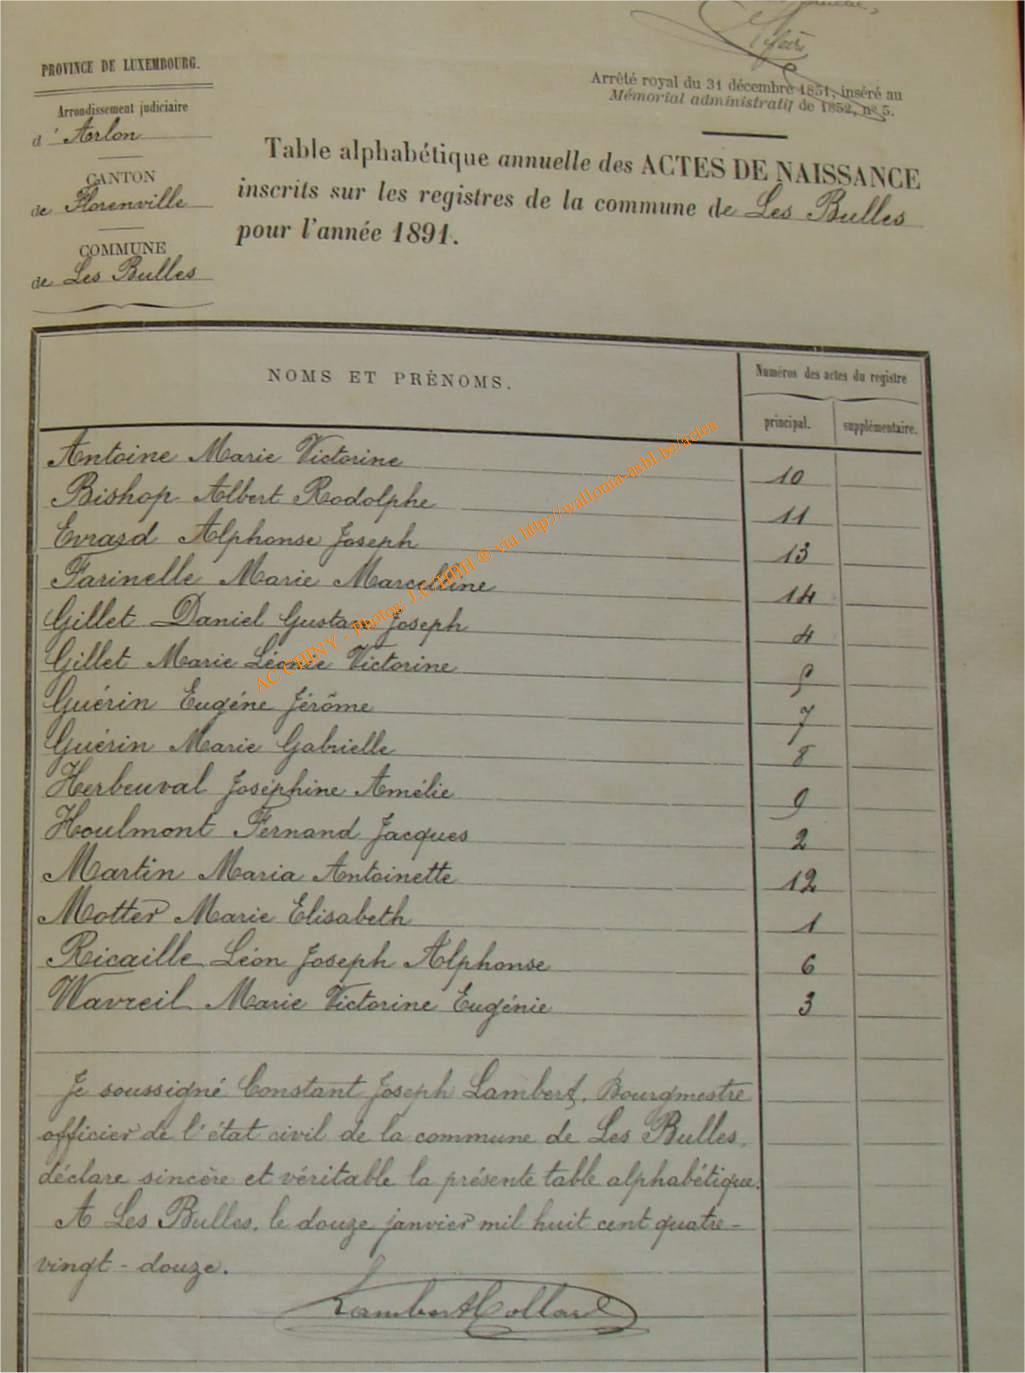 Maire
PROVINCE DE LUXEMBOURG.
Arrondissement judiciaire
d'Arlon
CANTON
de Florenville
COMMUNE
de Les Bulles
Arrêté royal du 31 décembre 1851, inséré au
Mémorial administratif de 1852, n° 5.
Table alphabétique annuelle des ACTES DE NAISSANCE
inscrits sur les registres de la commune de Les Bulles
pour l'année 1891.
NOMS ET PRÉNOMS.
Numéros des actes du registre
principal. supplémentaire.
Antoine Marie Victorine 10
Bishop Albert Rodolphe 11
Evrard Alphonse Joseph 13
Farinelle Marie Marcelline 14
Gillet Daniel Gustave Joseph 4
Gillet Marie Léonie Victorine 5
Guérin Eugéne Jérôme 7
Guérin Marie Gabrielle 8
Herbeuval Joséphine Amélie 9
Houlmont Fernand Jacques 2
Martin Maria Antoinette 12
Motter Marie Elisabeth 1
Ricaille Léon Joseph Alphonse 6
Wavreil Marie Victorine Eugénie 3
Je soussigné Constant Joseph Lambert, Bourgmestre
officier de l'état civil de la commune de Les Bulles,
déclare sincère et véritable la présente table alphabétique.
A Les Bulles, le douze janvier mil huit cent quatre-
vingt-douze.
Lambert Collard
AC CHINY - Photos J.C. HBH ® via http://wallonia-asbl.be/actes